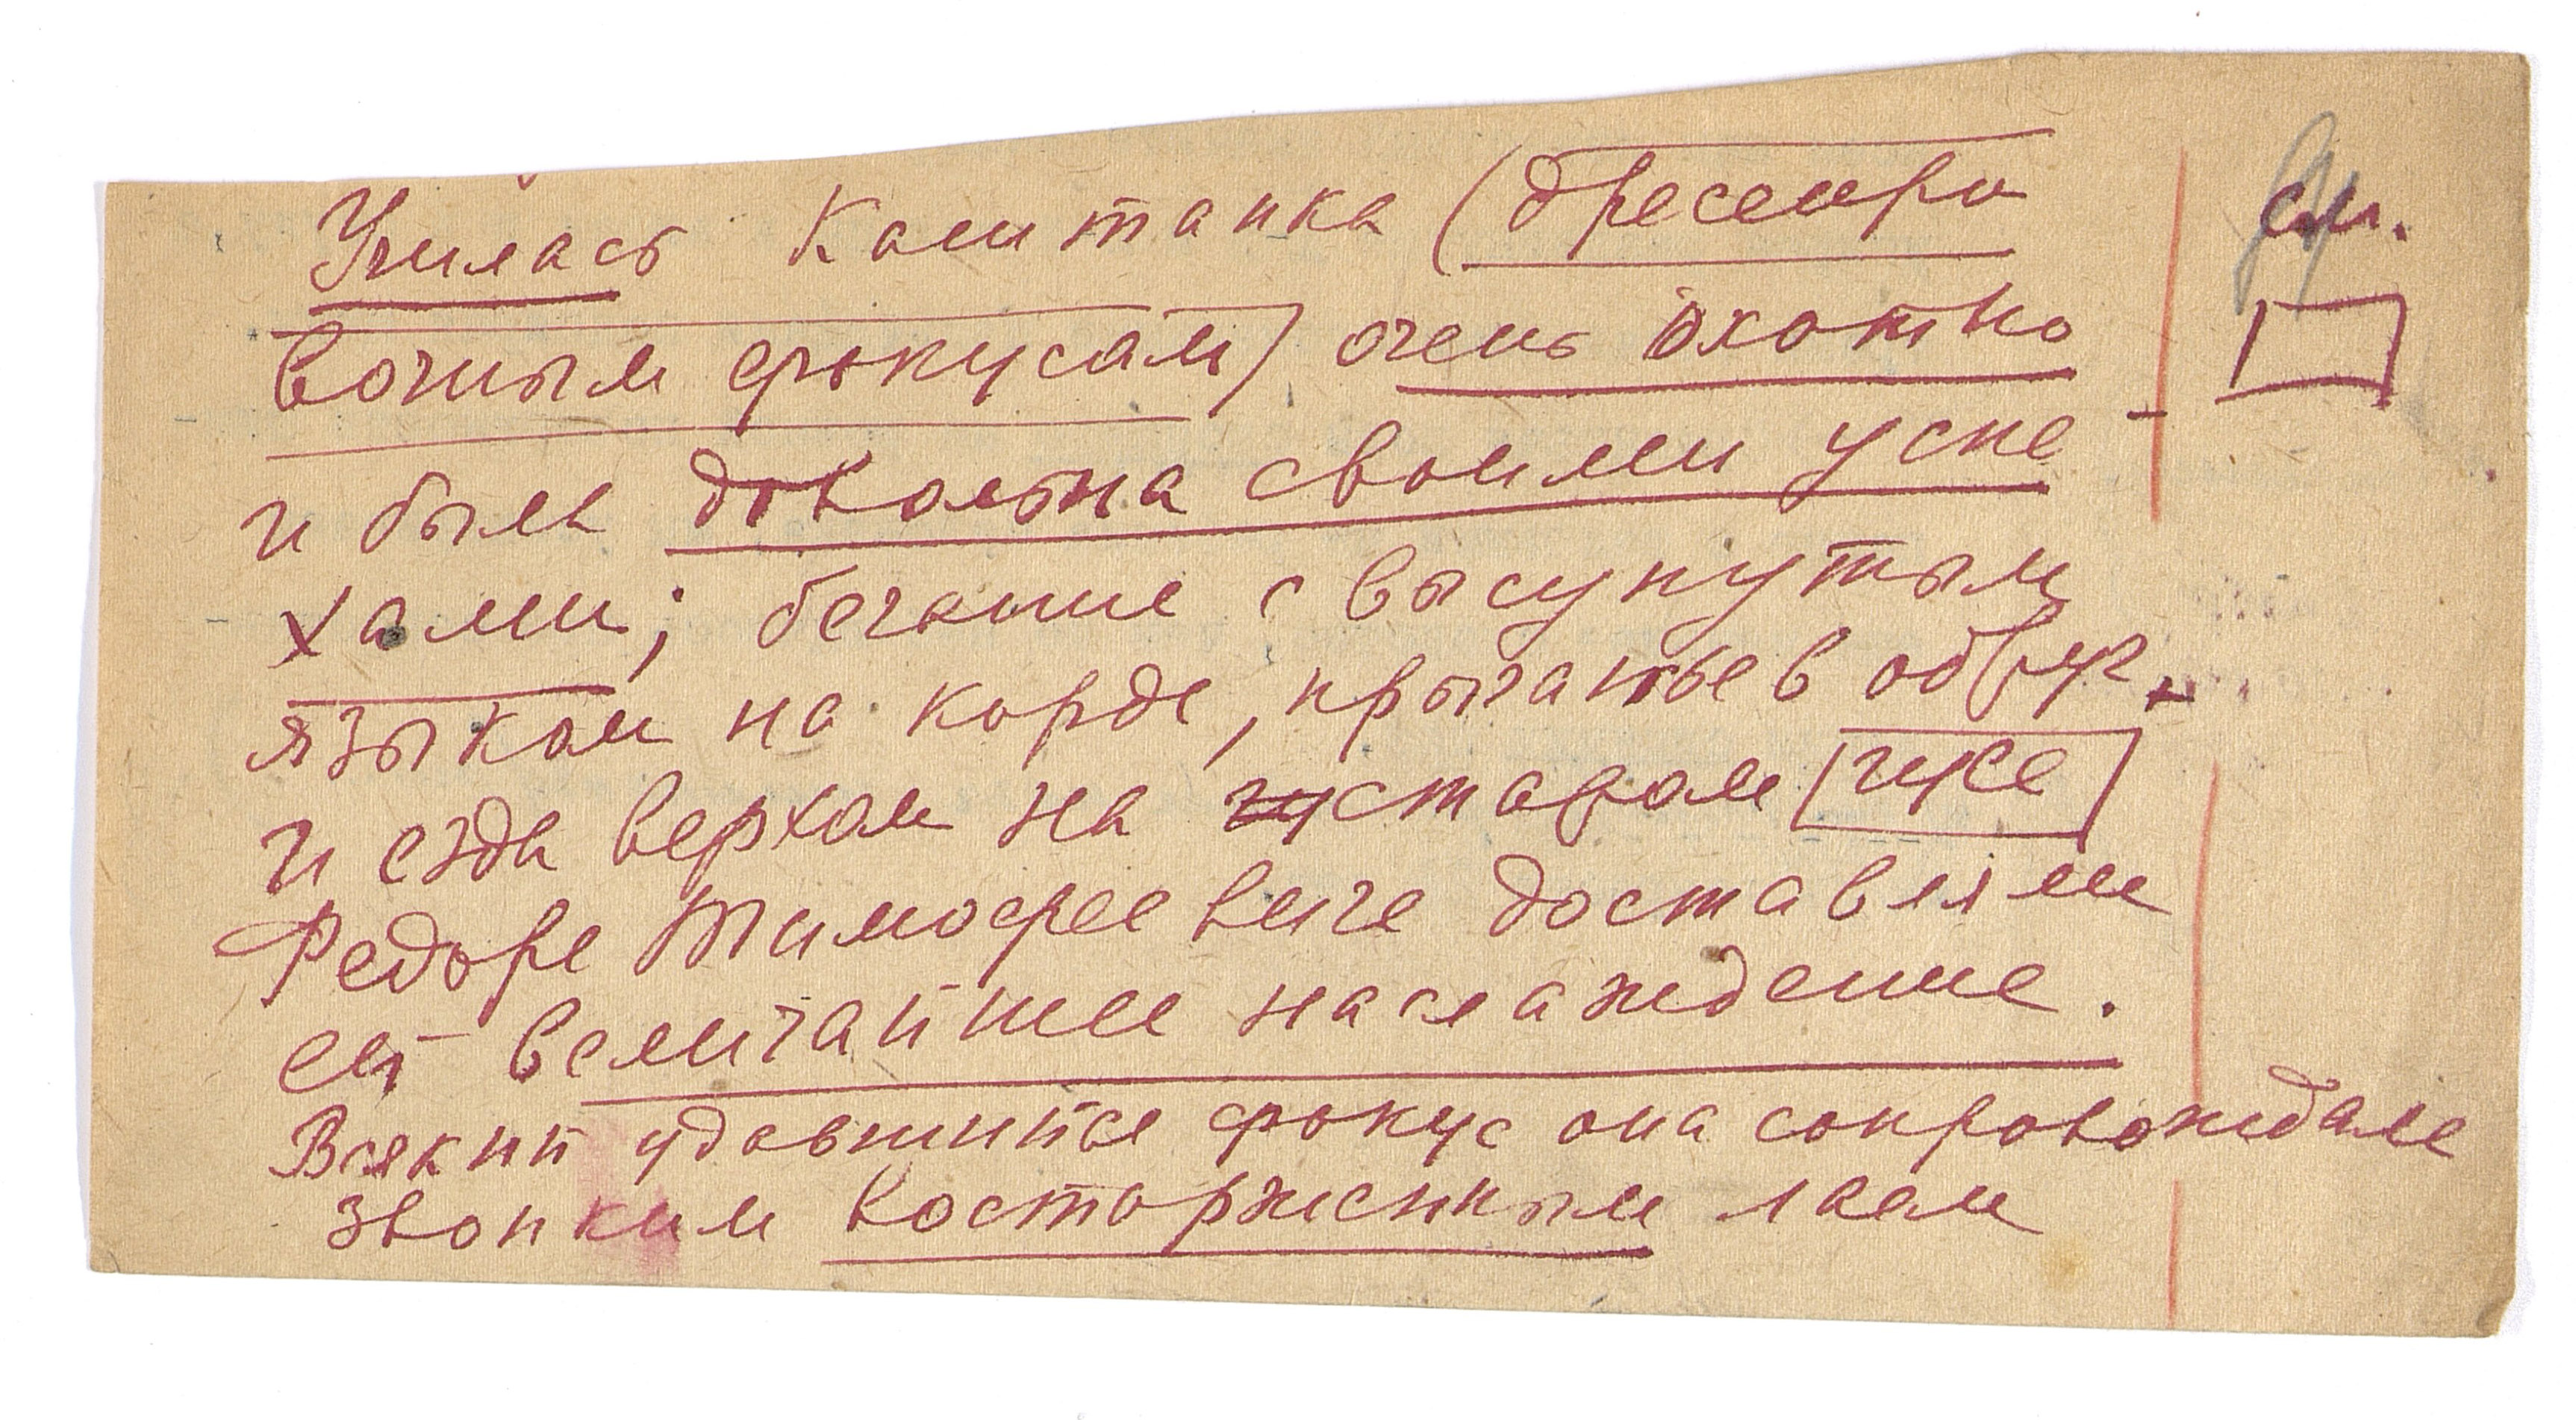 Училась Каштанка (дрессиро
вочным фокусам) очень охотно
и была довольна своими успе
хами; беганье с высунутым
языком на корде, прыганье в обруч,
и езда верхом на гу старом [гусе]
Федоре Тимофеевиче доставляли
ей величайшее наслаждение.
Всякий удавшийся фокус она сопровождала
звонким восторженным лаем
см.